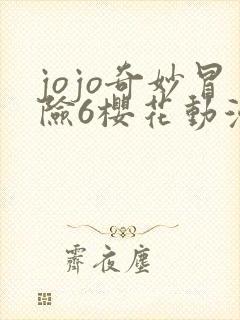 jojo奇妙冒
險6櫻花動漫
霽夜塵